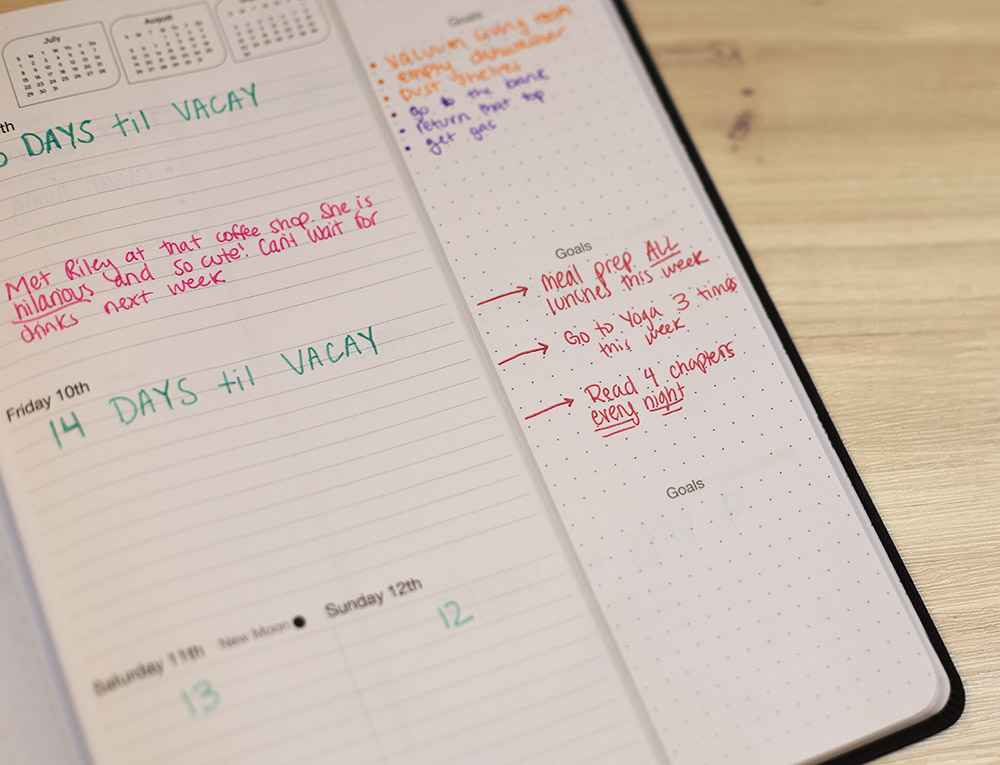 July
August
th
DAYS til VACAY
Met Riley at that coffee shop. She is
hilarious and so cute! Cant wait for
drinks next week
Friday 10th
14 DAYS til VACAY
Saturday 11th
New Moon
13
Sunday 12th
12
Goals
vacuum living room
empty dishwasher
Dust shelves
go to the bank
return that top
get gas
Goals
meal prep ALL
lunches this week
Go to Yoga 3 times
this week
Read 4 chapters
every night
Goals